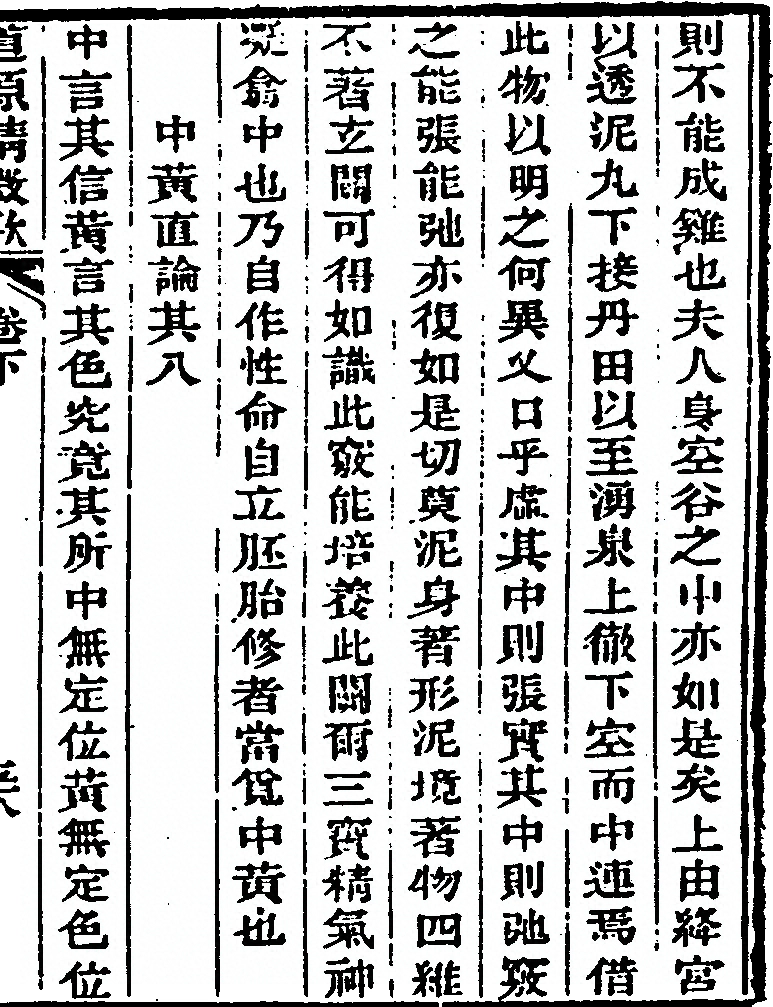 則不能成雞也夫人身空谷之中亦如是矣上由絳宮
以透泥丸下接丹田以至湧泉上徹下空而中連焉借
此物以明之何異父口乎虛其中則張實其中則弛竅
之能張能弛亦復如是切莫泥身著形泥境著物四維
不著玄關可得如識此竅能培養此關爾三寶精氣神
凝翕中也乃自作性命自立胚胎修者當覓中黃也
中黃直論其八
中言其信黃言其色究竟其所中無定位黃無定色位
道原精微歌 卷下